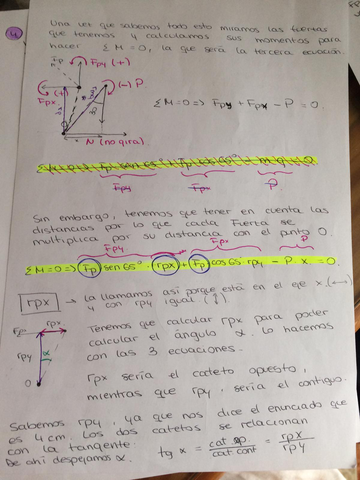 Una vez que sabemos todo esto miramos las fuerzas
que tenemos y calculamos sus momentos para
hacer ΣM = 0, la que será la tercera ecuación.
Fpy (+)
Fpx
(+)
(-) P
ΣM=0 => Fpy + Fpx - P = 0.
N (no gira)
Fpy Fpx P
Sin embargo, tenemos que tener en cuenta las
distancias por lo que cada fuerza se
multiplica por su distancia con el punto O.
Fpy Fpx P
ΣM=0 => Fp sen 65° · rpx + Fp cos 65 · rpy - P · x = 0.
rpx → la llamamos así porque está en el eje x.
y con rpy igual.
rpx
rpy
α
O
Tenemos que calcular rpx para poder
calcular el ángulo α. Lo hacemos
con las 3 ecuaciones.
rpx sería el cateto opuesto,
mientras que rpy, sería el contiguo.
Sabemos rpy, ya que nos dice el enunciado que
es 4 cm. Los dos catetos se relacionan
con la tangente: tg α = cat op. / cat cont = rpx / rpy
De ahí despejamos α.